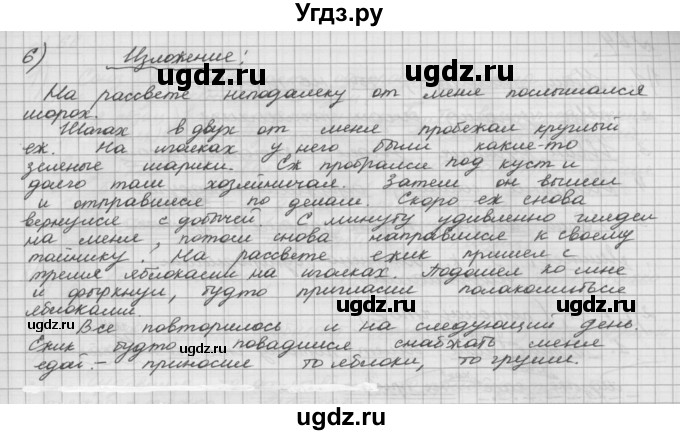 Угдз.ру
6) Изложение:
На рассвете неподалеку от меня послышался
шорох.
Шагах в двух от меня пробежал круглый
еж. На иголках у него были какие-то
зеленые шарики. Еж пробрался под куст и
долго там хозяйничал. Затем он вышел
и отправился по делам. Скоро еж снова
вернулся с добычей. С минуту удивленно глядел
на меня, потом снова направился к своему
тайнику. На рассвете ежик пришел с
тремя яблоками на иголках. Подошел ко мне
и фыркнул, будто пригласил полакомиться
яблоками.
Все повторилось и на следующий день.
Ежик будто повадился снабжать меня
едой – приносил то яблоки, то груши.
ugdz.ru
ugdz.ru
ugdz.ru
ugdz.ru
ugdz.ru
ugdz.ru
ugdz.ru
ugdz.ru